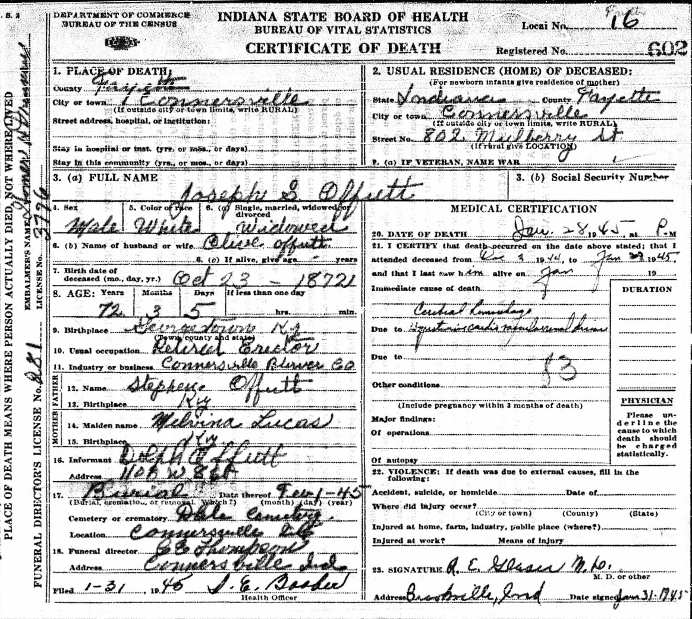 S. 3
DEPARTMENT OF COMMERCE
BUREAU OF THE CENSUS
INDIANA STATE BOARD OF HEALTH
BUREAU OF VITAL STATISTICS
CERTIFICATE OF DEATH
Local No. 16
Registered No. 602
PLACE OF DEATH MEANS WHERE PERSON ACTUALLY DIED, NOT WHERE LIVED
EMBALMER'S NAME
LICENSE No. 3776
FUNERAL DIRECTOR'S LICENSE No. 281
1. PLACE OF DEATH
County Fayette
City or town Connersville
(If outside city or town limits, write RURAL)
Street address, hospital, or institution:
Stay in hospital or inst. (yrs., or mos., or days)
Stay in this community (yrs., or mos., or days)
2. USUAL RESIDENCE (HOME) OF DECEASED:
(For newborn infants give residence of mother)
State Indiana County Fayette
City or town Connersville
(If outside city or town limits, write RURAL)
Street No. 802 Mulberry St
(If rural give LOCATION)
2. (a) IF VETERAN, NAME WAR
3. (a) FULL NAME
Joseph S Offutt
3. (b) Social Security Number
4. Sex
Male
5. Color or race
White
6. (a) Single, married, widowed or divorced
Widowed
6. (b) Name of husband or wife Olive Offutt
6. (c) If alive, give age years
7. Birth date of deceased (mo., day, yr.) Oct 23 - 1872
8. AGE: Years Months Days If less than one day
72 3 5 hrs. min.
9. Birthplace Georgetown Ky
(Town, county and state)
10. Usual occupation Retired Erector
11. Industry or business Connersville Blower Co
FATHER
12. Name Stephen Offutt
13. Birthplace Ky
MOTHER
14. Maiden name Melvina Lucas
15. Birthplace Ky
16. Informant Dolph Offutt
Address 1101 W 8 St
17. Burial Date thereof Feb-1-45
(Burial, cremation, or removal. Which?) (month) (day) (year)
Cemetery or crematory Dale Cemetery
Location Connersville
18. Funeral director Thompson
Address Connersville Ind.
Filed 1-31 1945
Health Officer
MEDICAL CERTIFICATION
20. DATE OF DEATH Jan. 28 1945 at P. M
21. I CERTIFY that death occurred on the date above stated; that I
attended deceased from Dec 3 1944, to Jan 1945
and that I last saw him alive on Jan 19
Immediate cause of death
DURATION
Cerebral Hemorrhage
Due to
Due to
83
Other conditions
(Include pregnancy within 3 months of death)
Major findings:
Of operations
Of autopsy
PHYSICIAN
Please underline the cause to which death should be charged statistically.
22. VIOLENCE: If death was due to external causes, fill in the
following:
Accident, suicide, or homicide Date of
Where did injury occur?
(City or town) (County) (State)
Injured at home, farm, industry, public place (where?)
Injured at work? Means of injury
23. SIGNATURE R. E. M.D.
M. D. or other
Address Brookville, Ind Date signed Jan 31-1945